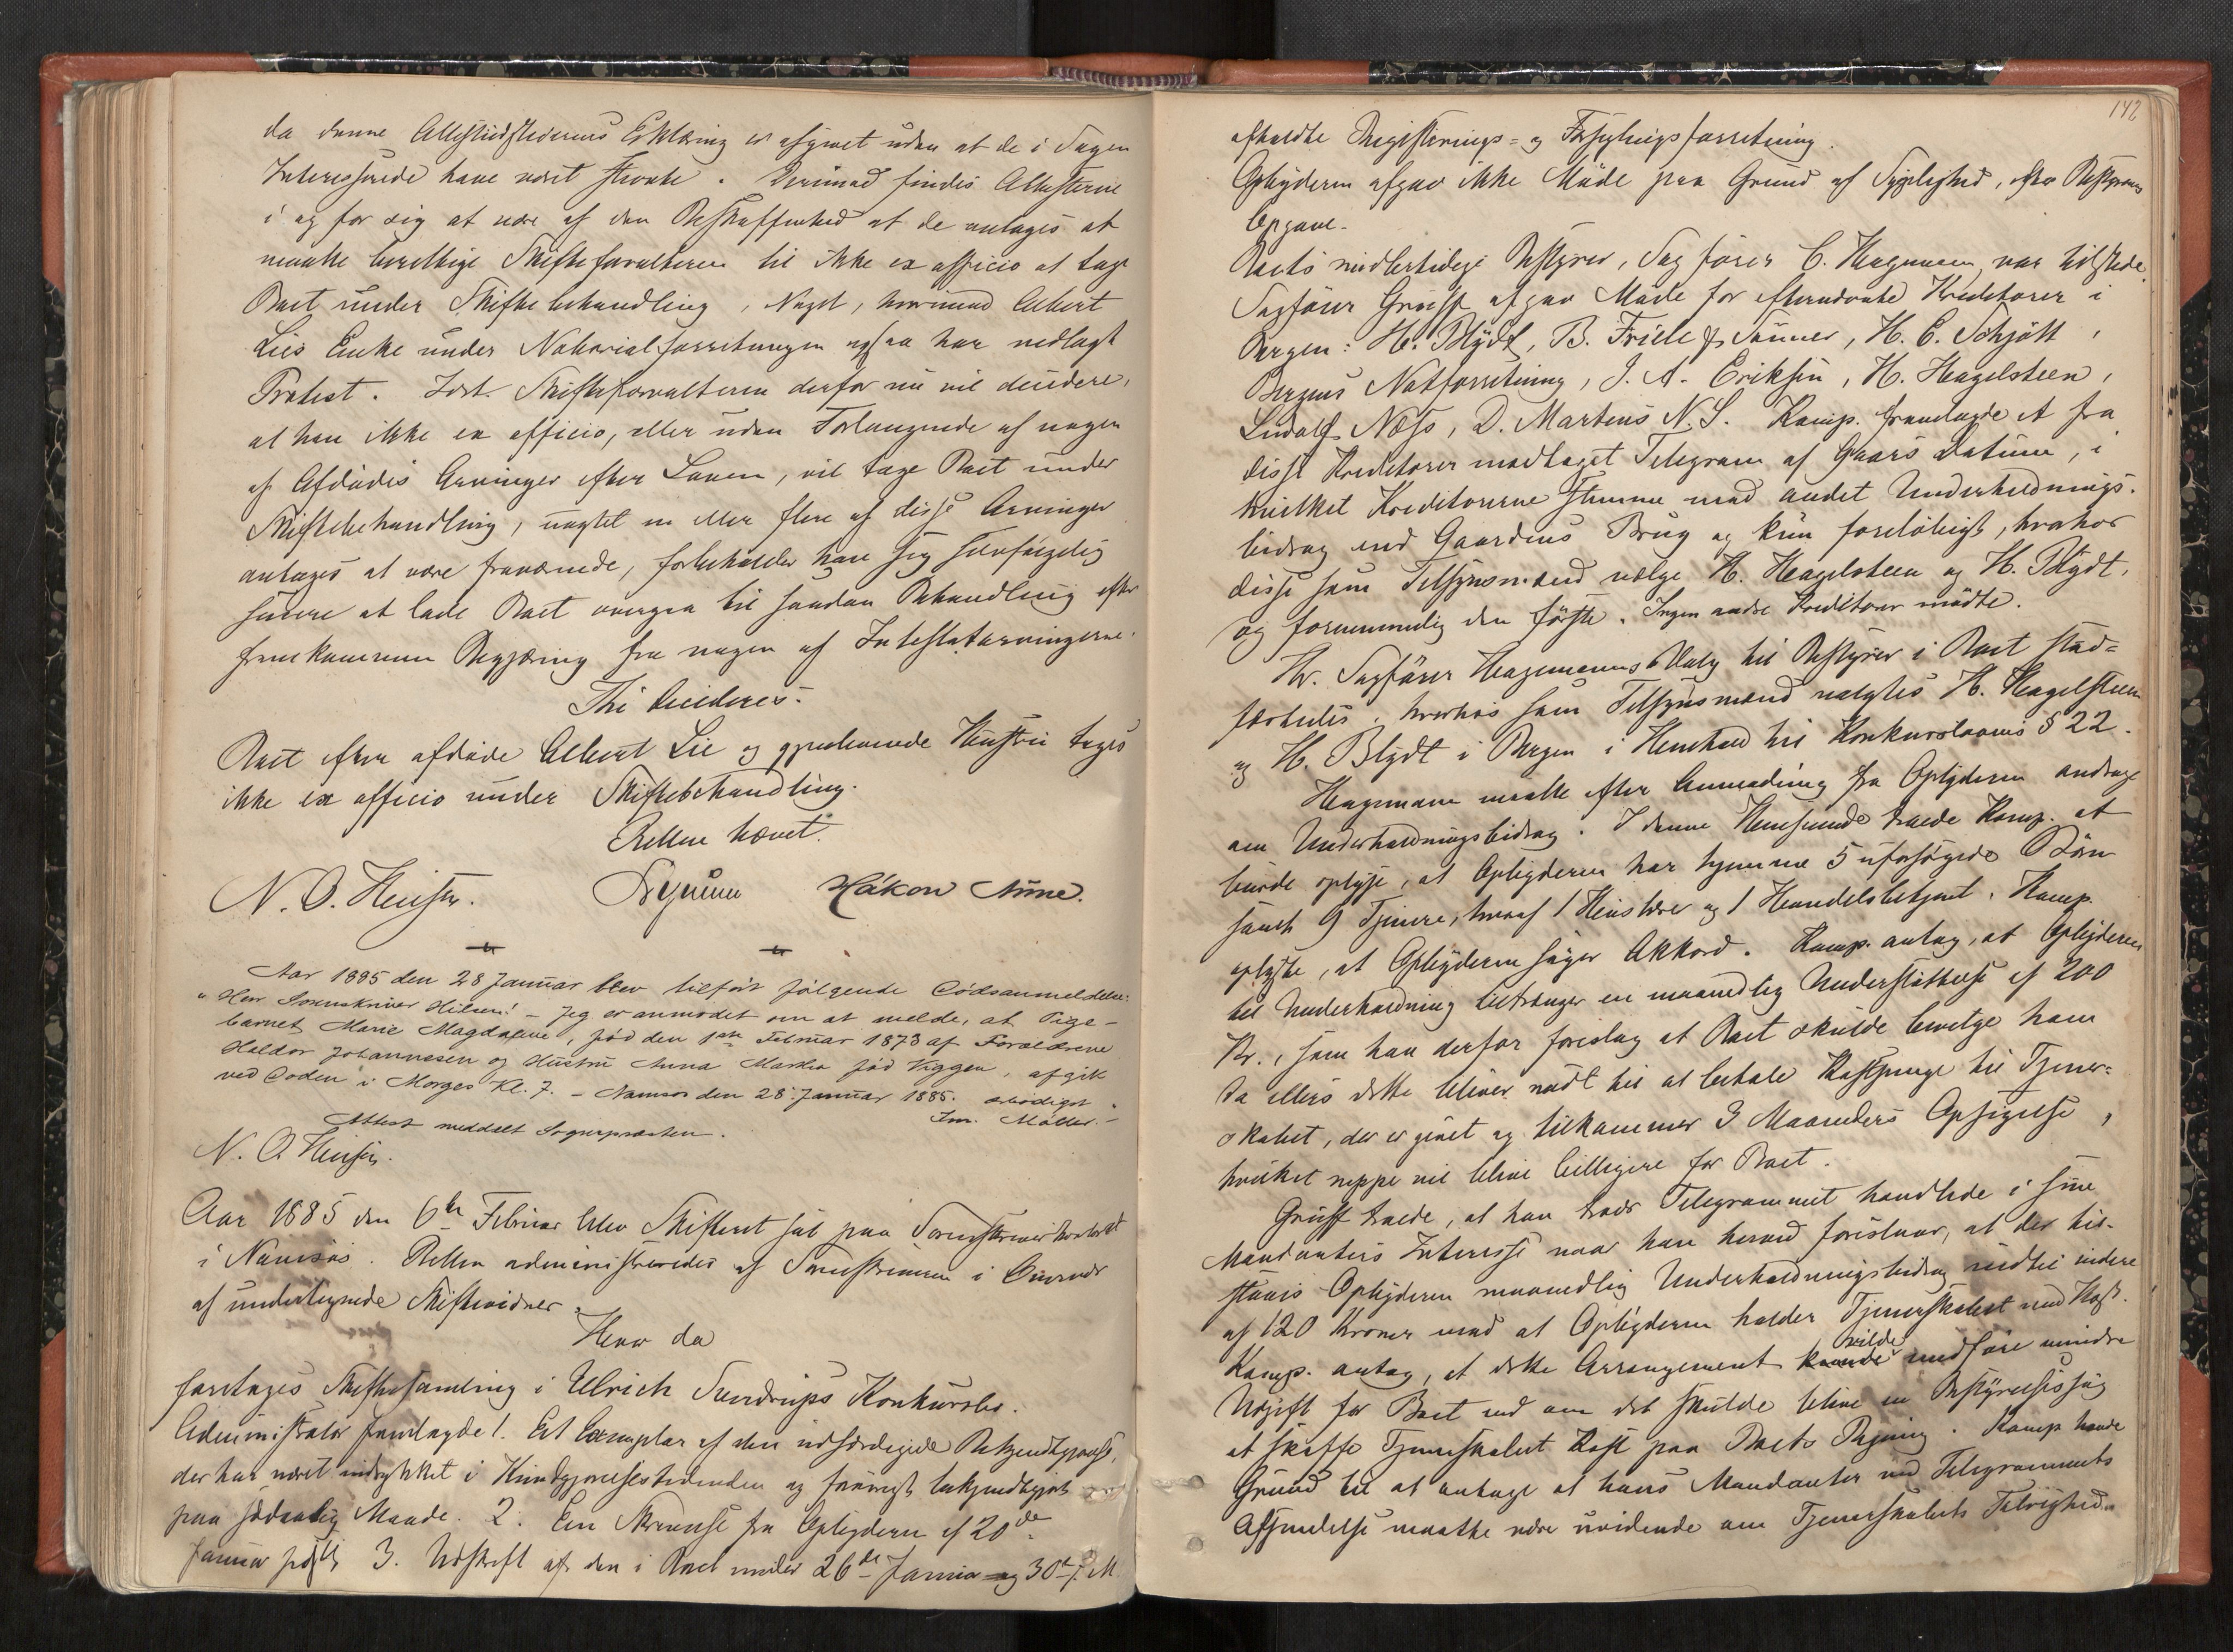 da denne Attestudstederens Erklæring er afgivet uden at de i Sagen
Interesserede have været stevnte. Derimod findes Attesterne
i og for sig at være af den Beskaffenhed at de antages at
maatte berettige Skifteforvalteren til ikke ex officio at tage
Boet under Skiftebehandling, Noget, hvorimod Albert
Lies Enke under Notorialforretningen ogsaa har nedlagt
Protest. Idet Skifteforvalteren derfor nu vil decidere,
at han ikke ex officio, eller uden Forlangende af nogen
af Afdødes Arvinger efter Loven, vil tage Boet under
Skiftebehandling, uagtet en eller flere af disse Arvinger
antages at være fraværende, forbeholder han sig selvfølgelig
senere at lade Boet overgaa til saadan Behandling efter
fremkommen Begjæring fra nogen af Intestatarvingerne.
Thi decideres:
Boet efter afdøde Albert Lie og gjenlevende Hustru tages
ikke ex officio under Skiftebehandling.
Retten hævet.
N. O. Hensen. Håkon Aune.
Aar 1885 den 28 Januar blev tilført følgende Dødsanmeldelse:
"Herr Sorenskriver Hilsen! – Jeg er anmodet om at melde, at Pige-
barnet Marie Magdalene, fød den 1ste Februar 1873 af Forældrene
Haldor Johannesen og Hustru Anna Martha fød Viggen, afgik
ved Døden i Morges Kl. 7. – Namsos den 28. Januar 1885. ærbødigst
Im. Møller."
Attest meddelt Sognepræsten.
N. O. Hensen.
Aar 1885 den 6te Februar blev Skifteret sat paa Sorenskriverkontoret
i Namsos. Retten administreredes af Sorenskriveren i Overvær
af undertegnede Skiftevidner.
Hvor da
foretages Skiftesamling i Ulrich Sendrups Konkursbo.
Administrator fremlagde 1. Et Exemplar af den udfærdigede Bekjendtgjørelse,
der har været indrykket i Kundgjørelsestidenden og forøvrigt bekjendtgjort
paa sædvanlig Maade. 2. En Skrivelse fra Opbyderen af 20de
Januar sidstl. 3. Udskrift af den i Boet under 26de Januar og 30te f. M.
142
afholdte Registrerings- og Forseglingsforretning.
Opbyderen afgav ikke Møde paa Grund af Sygelighed, efter Bestyrerens
Opgave.
Boets midlertidige Bestyrer, Sagfører C. Hagemann var tilstede.
Sagfører Gruff afgav Møde for efternævnte Kreditorer i
Bergen: H. Blydt, B. Friele & Sønner, H. C. Schjøtt,
Bergens Notforretning, J. A. Eriksen, H. Hagelsteen,
Ludolf Næss, D. Martens N. S. Komp. fremlagde et fra
disse Kreditorer modtaget Telegram af Gaars Datum, i
hvilket Kreditorerne stemme mod andet Underholdnings-
bidrag end Gaardens Brug og kun foreløbigt, hvorhos
disse som Tilsynsmænd vælge H. Hagelsteen og H. Blydt,
og fornemmelig den første. Ingen andre Kreditorer mødte.
Hr. Sagfører Hagemanns Valg til Bestyrer i Boet stad-
fæstedes, hvorhos som Tilsynsmænd valgtes H. Hagelsteen
og H. Blydt i Bergen i Henhold til Konkurslovens § 22.
Hagemann maatte efter Anmodning fra Opbyderen andrage
om Underholdningsbidrag. I denne Henseende troede Komp. at
burde oplyse, at Opbyderen har hjemme 5 uforsørgede Børn
samt 9 Tjenere, hvoraf 1 Huslærer og 1 Handelsbetjent. Komp.
oplyste, at Opbyderen søger Akkord. Komp. antog, at Opbyderen
til Underholdning tiltrænger en maanedlig Understøttelse af 200
Kr., som han derfor foreslog at Boet skulde bevilge ham
da ellers dette bliver nødt til at betale Kostpenge til Tjener-
skabet, der er givet og tilkommer 3 Maaneders Opsigelse,
hvilket neppe vil blive billigere for Boet.
Gruff troede, at han trods Telegrammet handlede i sine
Mandanters Interesse naar han herved foreslaar, at der til-
staaes Opbyderen maanedlig Underholdningsbidrag indtil videre
af 120 Kroner mod at Opbyderen holder Tjenerskabet med Kost.
Komp. antog, at dette Arrangement vilde medføre mindre
Udgift for Boet end om det skulde blive en Bestyrelsessag
at skaffe Tjenerskabet Kost paa Boets Regning. Komp. havde
Grund til at antage at hans Mandanter ved Telegrammets
Afsendelse maatte være uvidende om Tjenerskabets Talrighed.